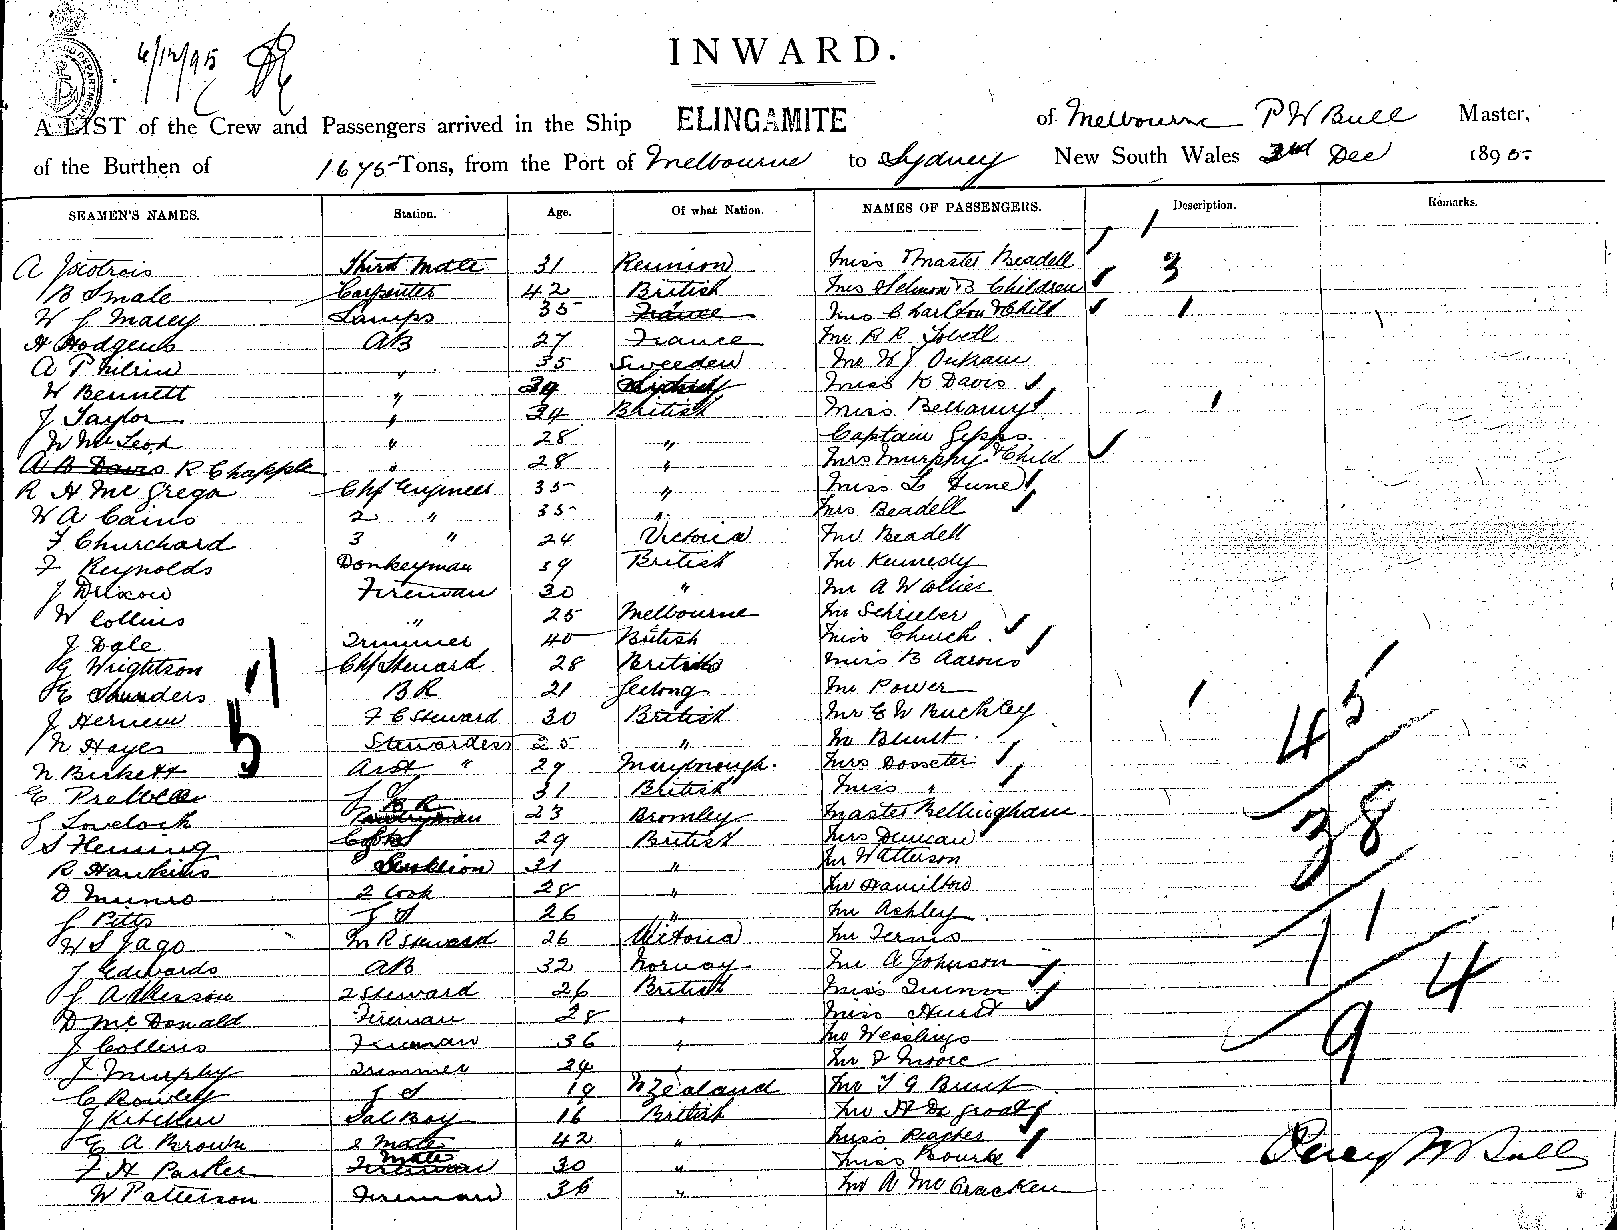 6/12/95
INWARD.
A LIST of the Crew and Passengers arrived in the Ship ELINGAMITE of Melbourne P W Bull Master,
of the Burthen of 1675 Tons, from the Port of Melbourne to Sydney New South Wales 3rd Dec 1895.
SEAMEN'S NAMES. Station. Age. Of what Nation. NAMES OF PASSENGERS. Description. Remarks.
A Third Mate 31 Reunion Miss & Master Beadell
B Smale Carpenter 42 British Mrs & 3 Children 3
W G Marey Lamps 35 France Mrs Charlton & Child 1
H Hodgens AB 27 France Mr R R
A P " 35 Sweeden Mr W J
W Bennett " 39 Sydney Miss K Davis
J Taylor " 34 British Miss Bellamy 1
W McLeod " 28 " Captain Gipps
A B Davis R Chapple " 28 " Mrs Murphy & Child
R H McGrega Chf Engineer 35 " Miss L June
W A Cains 2 " 35 " Mrs Beadell
F Churchard 3 " 24 Victoria Mr Beadell
F Reynolds Donkeyman 39 British Mr Kennedy
J Drixow Fireman 30 " Mr A W
W Collins " 25 Melbourne Mr Schrieber
J Dale Trimmer 40 British Miss Church
G Wrightson Chf Steward 28 British Miss B Aarons
E Saunders BR 21 Geelong Mr Power 1
J Hernew F C Steward 30 British Mr E W Buckley 45
N Hayes Stewardess 25 " Mr Blunt
N Birkett Asst " 29 Maryborough. Mrs Dosseter
E 31 British Miss "
G Lovelock BR Pantryman 23 Bromley Master Bellingham 38
S Fleming Cook 29 British Mrs Duncan
R Hawkins 31 " Mr Watterson
D Munro 2 Cook 28 " Mr Hamilton
G Pitts 26 " Mr Ashley 11
W S Jago M R Steward 26 Victoria Mr Ferris
J Edwards AB 32 Norway Mr A Johnson
G Adkerson 2 Steward 26 British Miss Quinn 4
D McDonald Fireman 28 " Miss Hunt
J Collins Fireman 36 " Mr Wesslings 9
J Murphy Trimmer 24 " Mr F Moore
C Rowley 19 N Zealand Mr T G Brunt
J Kitchen Sal Boy 16 British Mr H De Groot
E A Brown 2 Mate 42 " Miss Peacher
F H Parker Mate Fireman 30 " Miss Bourke
W Patterson Fireman 36 " Mr A McCracken
Percy W Bull